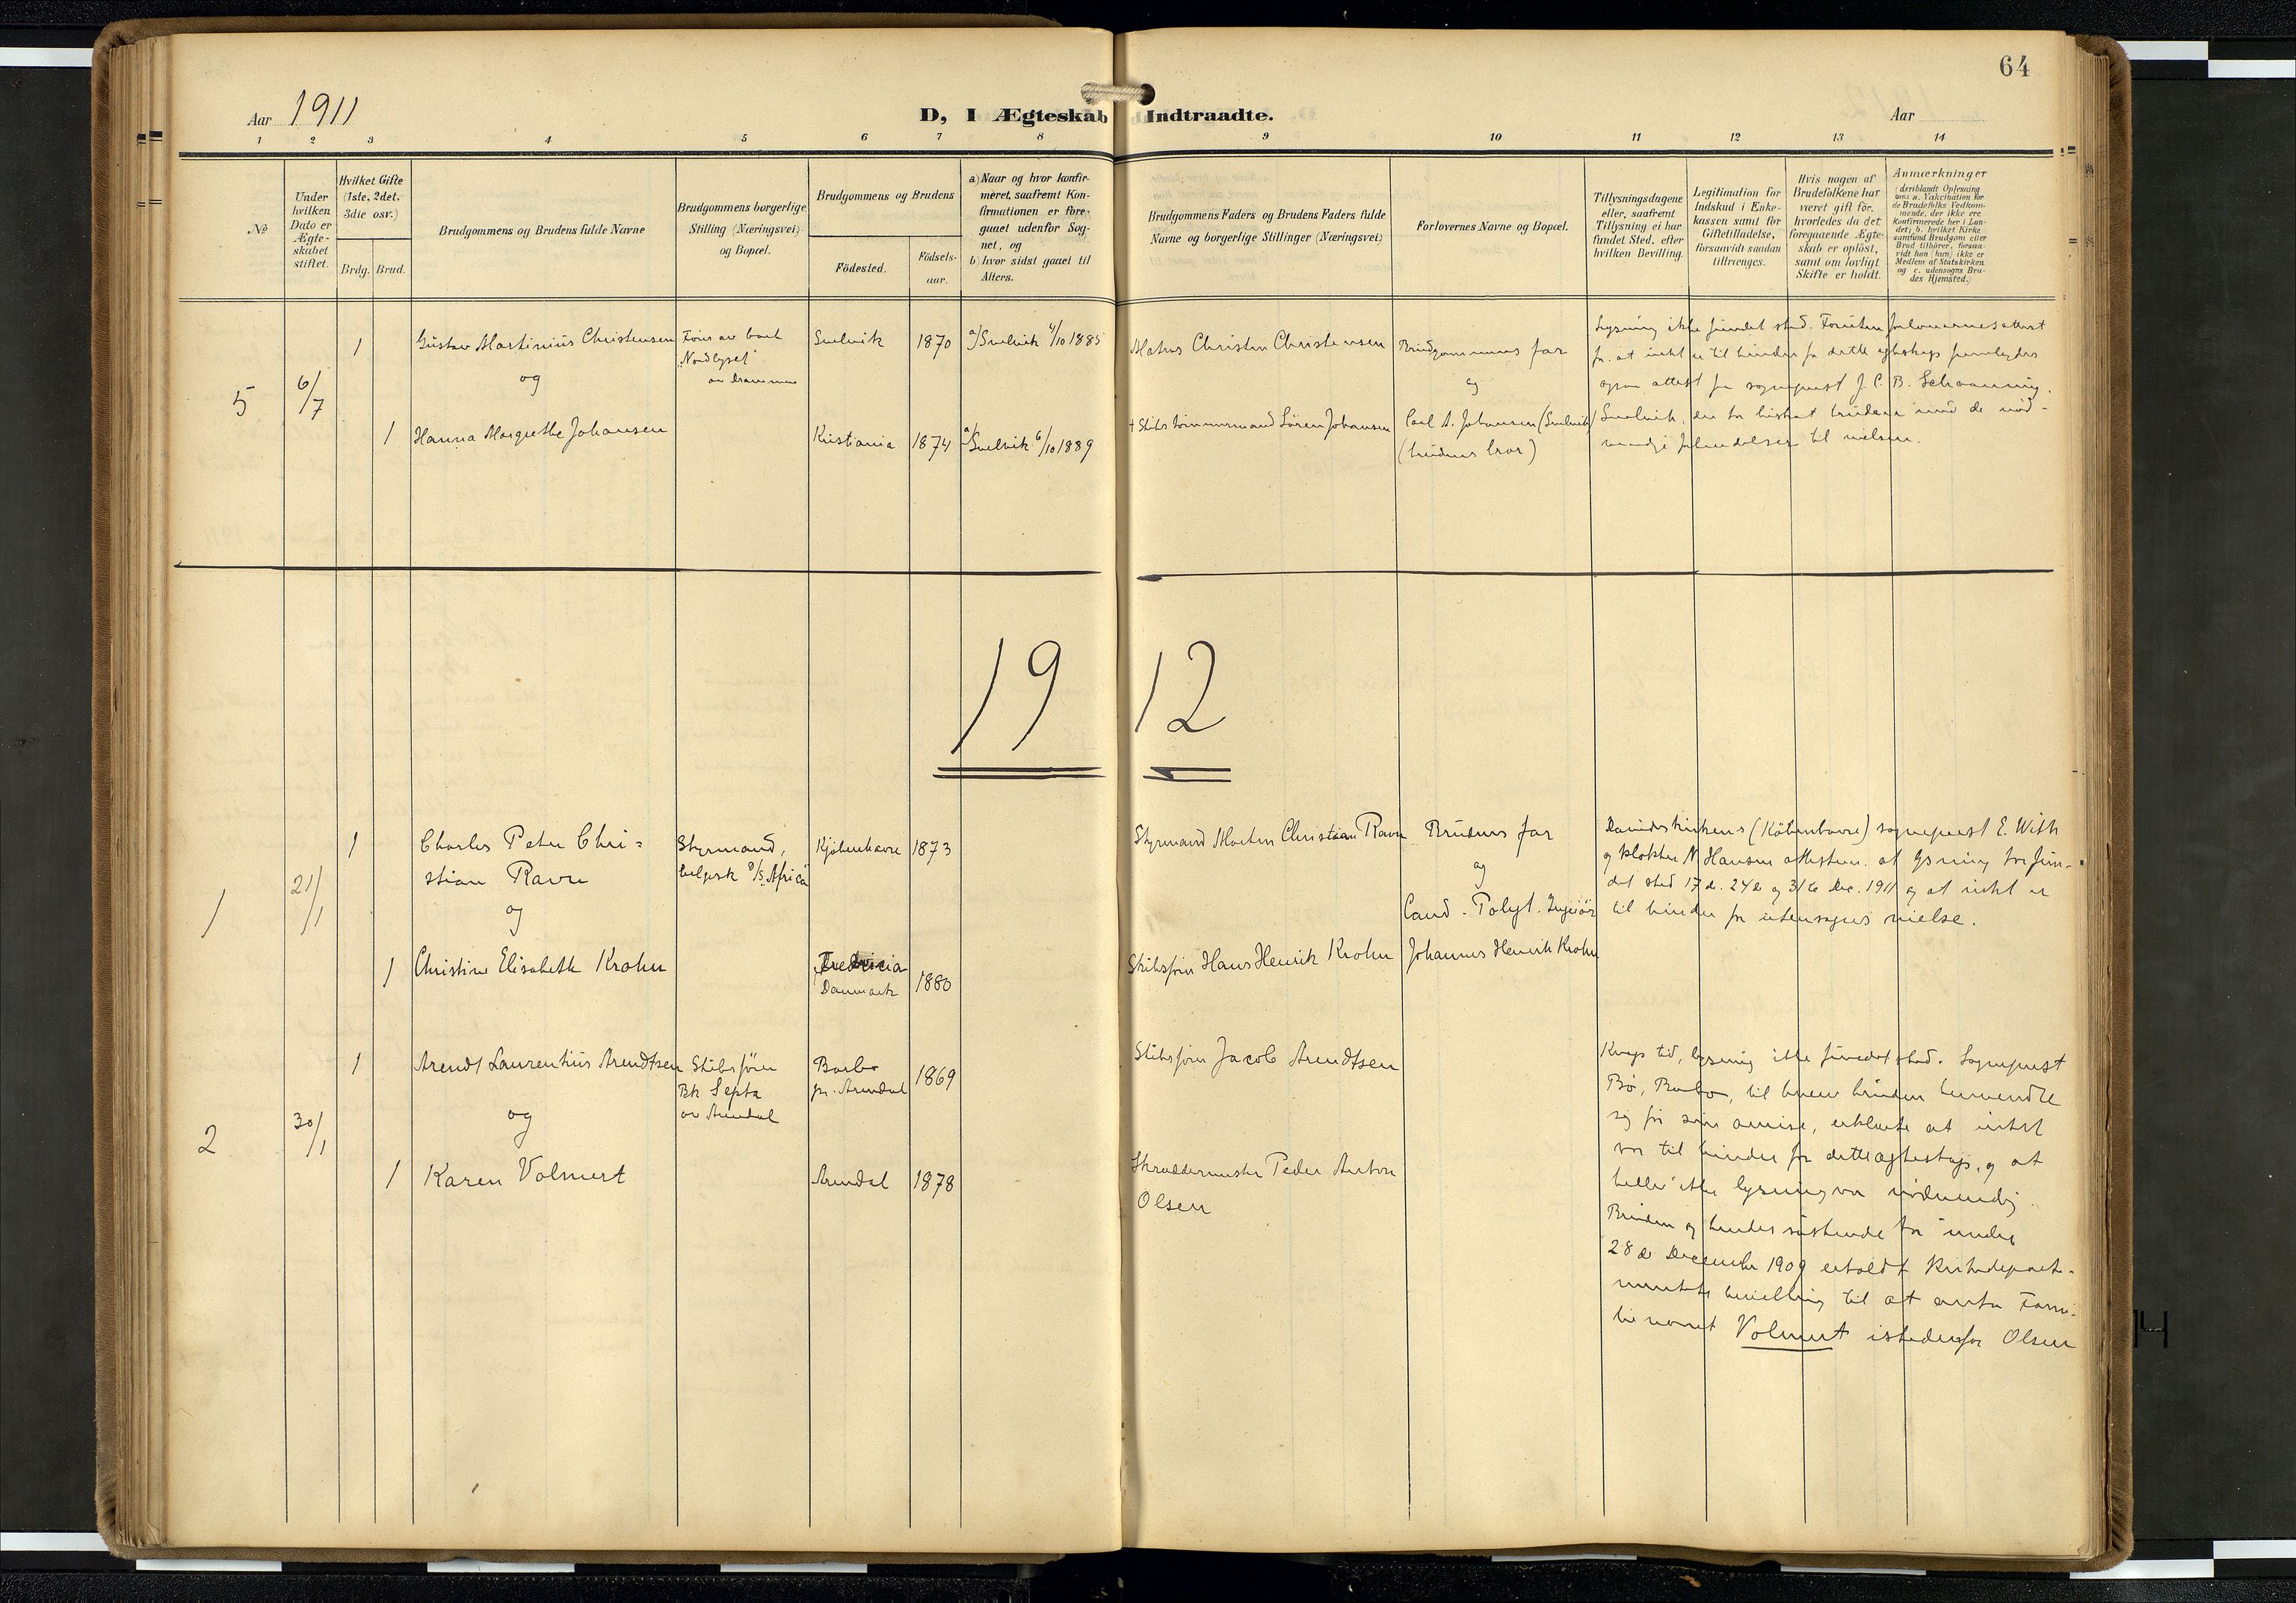 64
Aar 1911
D, I Ægteskab Indtraadte.
Aar
1 2 3 4 5 6 7 8 9 10 11 12 13 14
No
Under
hvilken
Dato er
Ægte-
skabet
stiftet.
Hvilket Gifte
(1ste, 2det,
3die osv.)
Brdg. Brud.
Brudgommens og Brudens fulde Navne
Brudgommens borgerlige
Stilling (Næringsvei)
og Bopæl.
Brudgommens og Brudens
Födested.
Födsels-
aar.
a) Naar og hvor konfir-
meret, saafremt Kon-
firmationen er fore-
gaaet udenfor Sog-
net, og
b) hvor sidst gaaet til
Alters.
Brudgommens Faders og Brudens Faders fulde
Navne og borgerlige Stillinger (Næringsvei)
Forlovernes Navne og Bopæl.
Tillysningsdagene
eller, saafremt
Tillysning ei har
fundet Sted, efter
hvilken Bevilling.
Legitimation for
Indskud i Enke-
kassen samt for
Giftetilladelse,
forsaavidt saadan
tiltrænges.
Hvis nogen af
Brudefolkene har
været gift før,
hvorledes da det
foregaaende Ægte-
skab er oplöst,
samt om lovligt
Skifte er holdt.
Anmærkninger
(deriblandt Oplysning
om: a. Vakcination for
de Brudefolks Vedkom-
mende, der ikke ere
Konfirmerede her i Lan-
det; b. hvilket Kirke-
samfund Brudgom eller
Brud tilhörer, forsaa-
vidt han (hun) ikke er
Medlem af Statskirken
og c. udensogns Bru-
des Hjemsted.)
5
6/7
1
Gustav Martinius Christensen
og
1
Hanna Margrethe Johansen
Förer av bark
"Nordlyset"
av Drammen
Svelvik
1870
a) Svelvik 4/10 1885
Kristiania
1874
a) Svelvik 6/10 1889
Matros Christen Christensen
+ Skibstömmermand Sören Johansen
Brudgommens far
og
Carl A. Johansen (Svelvik)
(brudens bror)
Lysning ikke fundet sted. Foruten forlovernes attest
for at intet er til hinder for dette egteskap fremlagdes
ogsaa attest fra sogneprest J. C. B. Schaanning,
Svelvik, der har bistaat brudene med de nöd-
vendige forberedelser til vielsen.
1912
1
21/1
1
Charles Peter Chri=
stian Ravn
og
1
Christine Elisabeth Krohn
Styrmand,
belgisk S/S. "Africa"
Kjöbenhavn
1873
Fredricia
Danmark
1880
Styrmand Morten Christian Ravn
Skibsförer Hans Henrik Krohn
Brudens far
og
Cand. Polyt. Ingeniör
Johannes Henrik Krohn
Davidskirkens (Köbenhavn) sogneprest E. With
og klokker N. Hansen attesterer at lysning har fun-
det sted 17de. 24de og 31te Dec. 1911 og at intet er
til hinder for utensogns vielse.
2
30/1
1
Arendt Laurentius Arendtsen
og
1
Karen Volmert
Skibsförer
Bk Septa
av Arendal
Barbo
pr. Arendal
1869
Arendal
1878
Skibsförer Jacob Arendtsen
Skræddermester Peder Anton
Olsen
Knap tid, lysning ikke fundet sted. Sogneprest
Bö, Barbo, til hvem bruden henvendte
sig för sin avreise, erklærte at intet
var til hinder for dette egteskap, og at
heller ikke lysning var nödvendig.
Bruden og hendes söskende har under
28de December 1909 erholdt Kirkedeparte-
mentets bevilling til at anta Fami-
lienavnet Volmert istedenfor Olsen